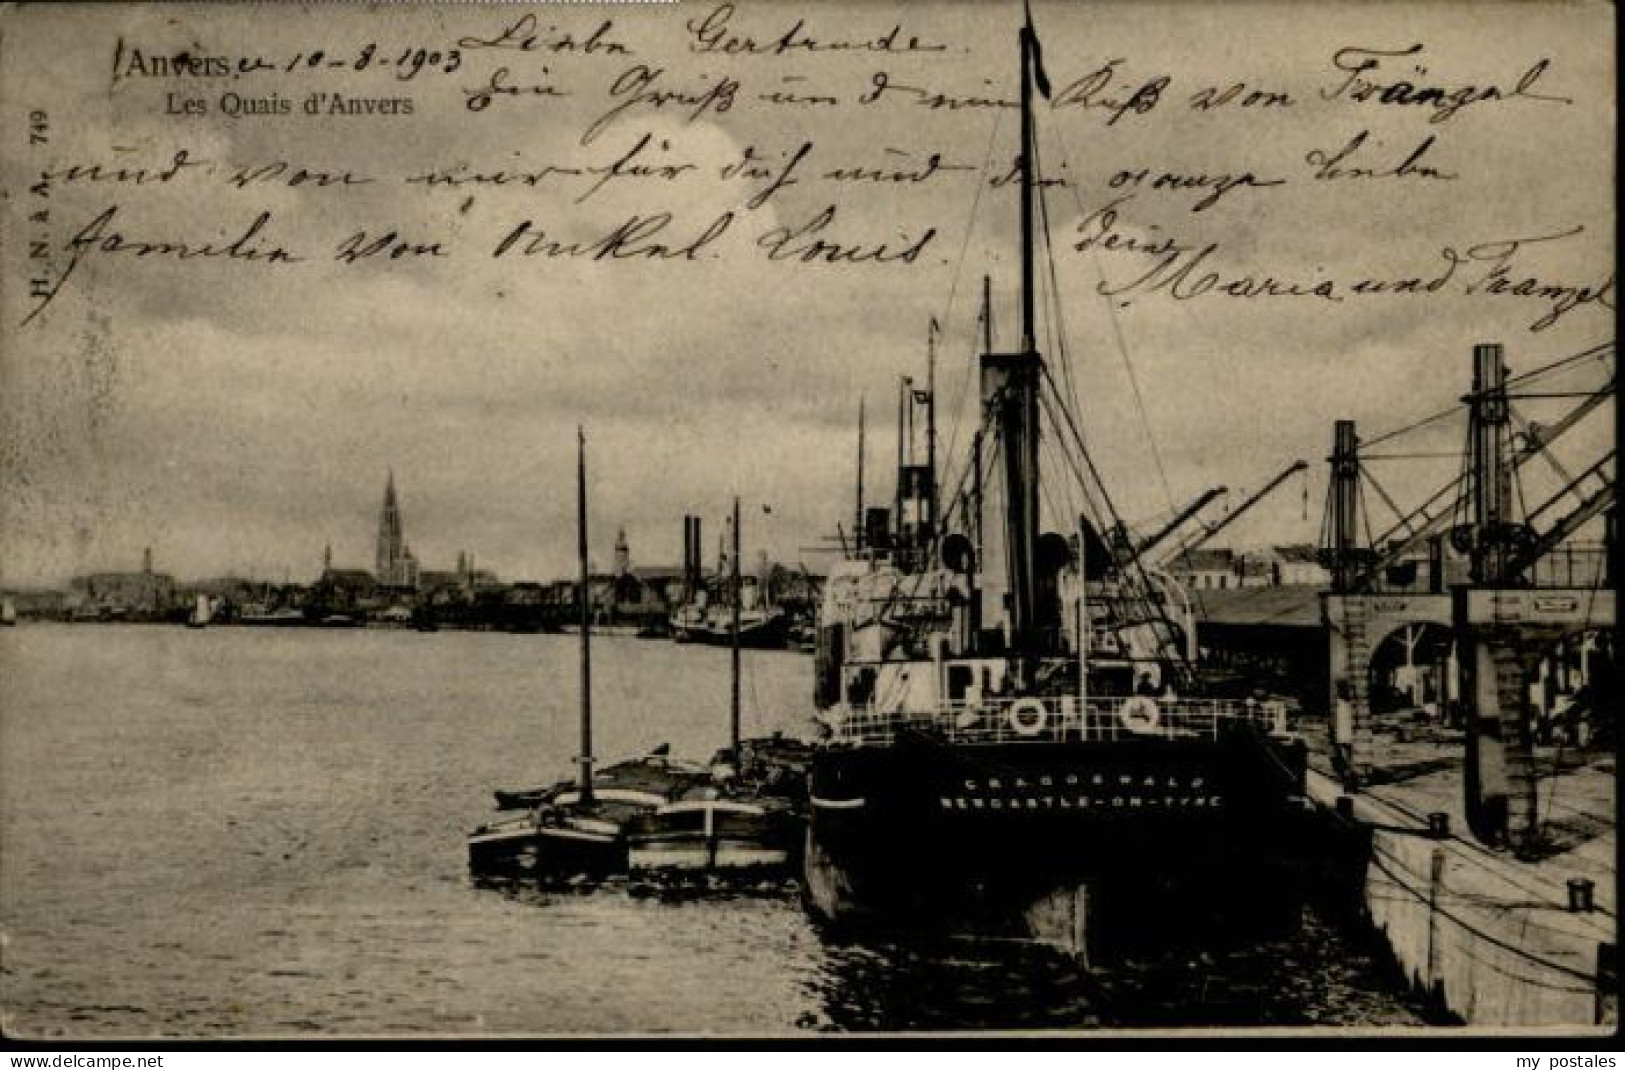 Anvers, 10-8-1903
Les Quais d'Anvers
H. N. à A. 749
Liebe Gertrude.
Ein Gruß und ein Kuß von Fränzel
und von mir für dich und die ganze liebe
familie von Onkel. Louis.
deine
Maria und Franzel
CRAGGSWALD
NEWCASTLE-ON-TYNE
www.delcampe.net
my_postales